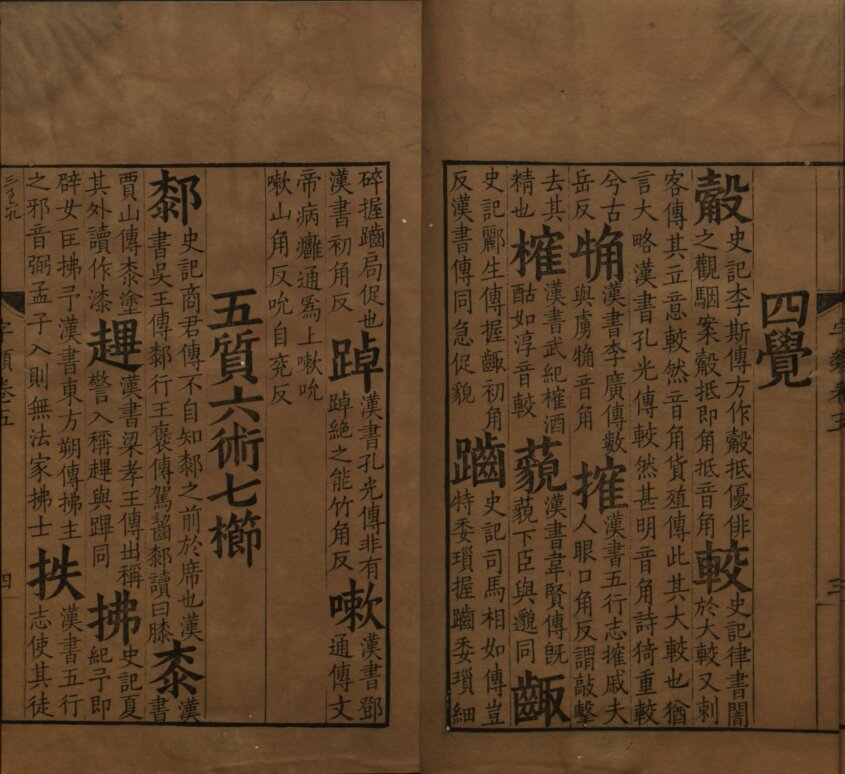 四覺
觳史記李斯傳方作觳抵優俳之觀駰案觳抵即角抵音角較史記律書闇於大較又刺
客傳其立意較然音角貨殖傳此其大較也猶
言大略漢書孔光傳較然甚明音角詩猗重較
兮古岳反觕漢書李廣傳數與虜觕音角搉漢書五行志搉戚夫人眼口角反謂敲擊
去其精也榷漢書武紀榷酒酤如淳音較藐漢書韋賢傳旣藐下臣與邈同齱
史記酈生傳握齱初角反漢書傳同急促貌齪史記司馬相如傳豈特委瑣握齪委瑣細
字類卷五
三
碎握齪局促也漢書初角反踔漢書孔光傳非有踔絕之能竹角反嗽漢書鄧通傳文
帝病癰通爲上嗽吮
嗽山角反吮自兖反
五質六術七櫛
厀史記商君傳不自知厀之前於席也漢書吳王傳厀行王褒傳駕齧厀讀曰膝桼漢書
賈山傳桼塗其外讀作漆䟆漢書梁孝王傳出稱警入稱䟆與蹕同拂史記夏紀予即
辟女匡拂予漢書東方朔傳拂主之邪音弼孟子入則無法家拂士抶漢書五行志使其徒
字類卷五
四